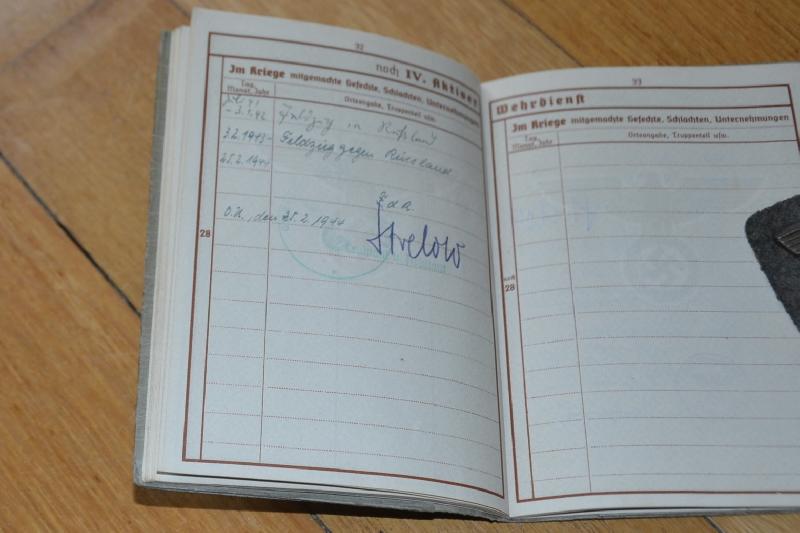 32
noch IV. Aktiver
Im Kriege mitgemachte Gefechte, Schlachten, Unternehmungen
Tag, Monat, Jahr
Ortsangabe, Truppenteil usw.
- 3.1.42 Feldzug in Rußland
3.2.1943- Feldzug gegen Russland
25.2.1944
F. d. R.
O.U., den 25.2.1944
Strelow
28
33
Wehrdienst
Im Kriege mitgemachte Gefechte, Schlachten, Unternehmungen
Tag, Monat, Jahr
Ortsangabe, Truppenteil usw.
noch 28